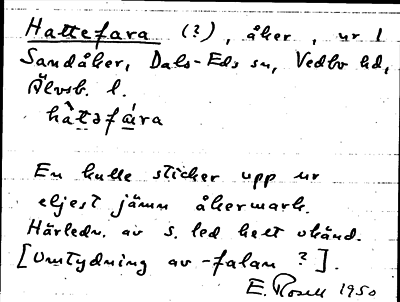 Hattefara (?), åker, nr 1
Sandåker, Dals-Eds sn, Vedbo hd,
Älvsb. l.
hàtəfára
En kulle sticker upp ur
eljest jämn åkermark.
Härledn. av s. led helt okänd.
[Omtydning av -falan ?].
E. Rosell 1950